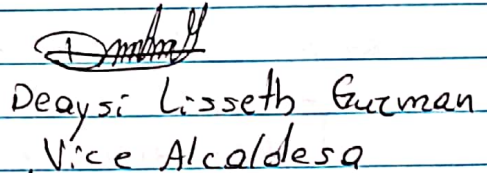 Deaysi Lisseth Guzman
Vice Alcaldesa